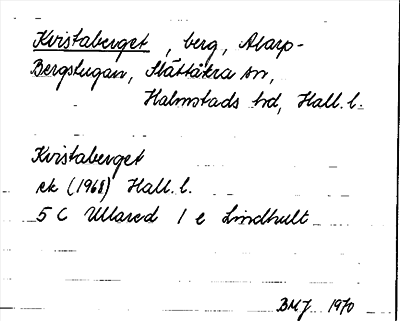 Kvistaberget, berg, Abarp-
Bergstugan, Slättåkra sn,
Halmstads hd, Hall. l.
Kvistaberget
ek (1968) Hall. l.
5 C Ullared 1 e Lindhult
BMJ 1970